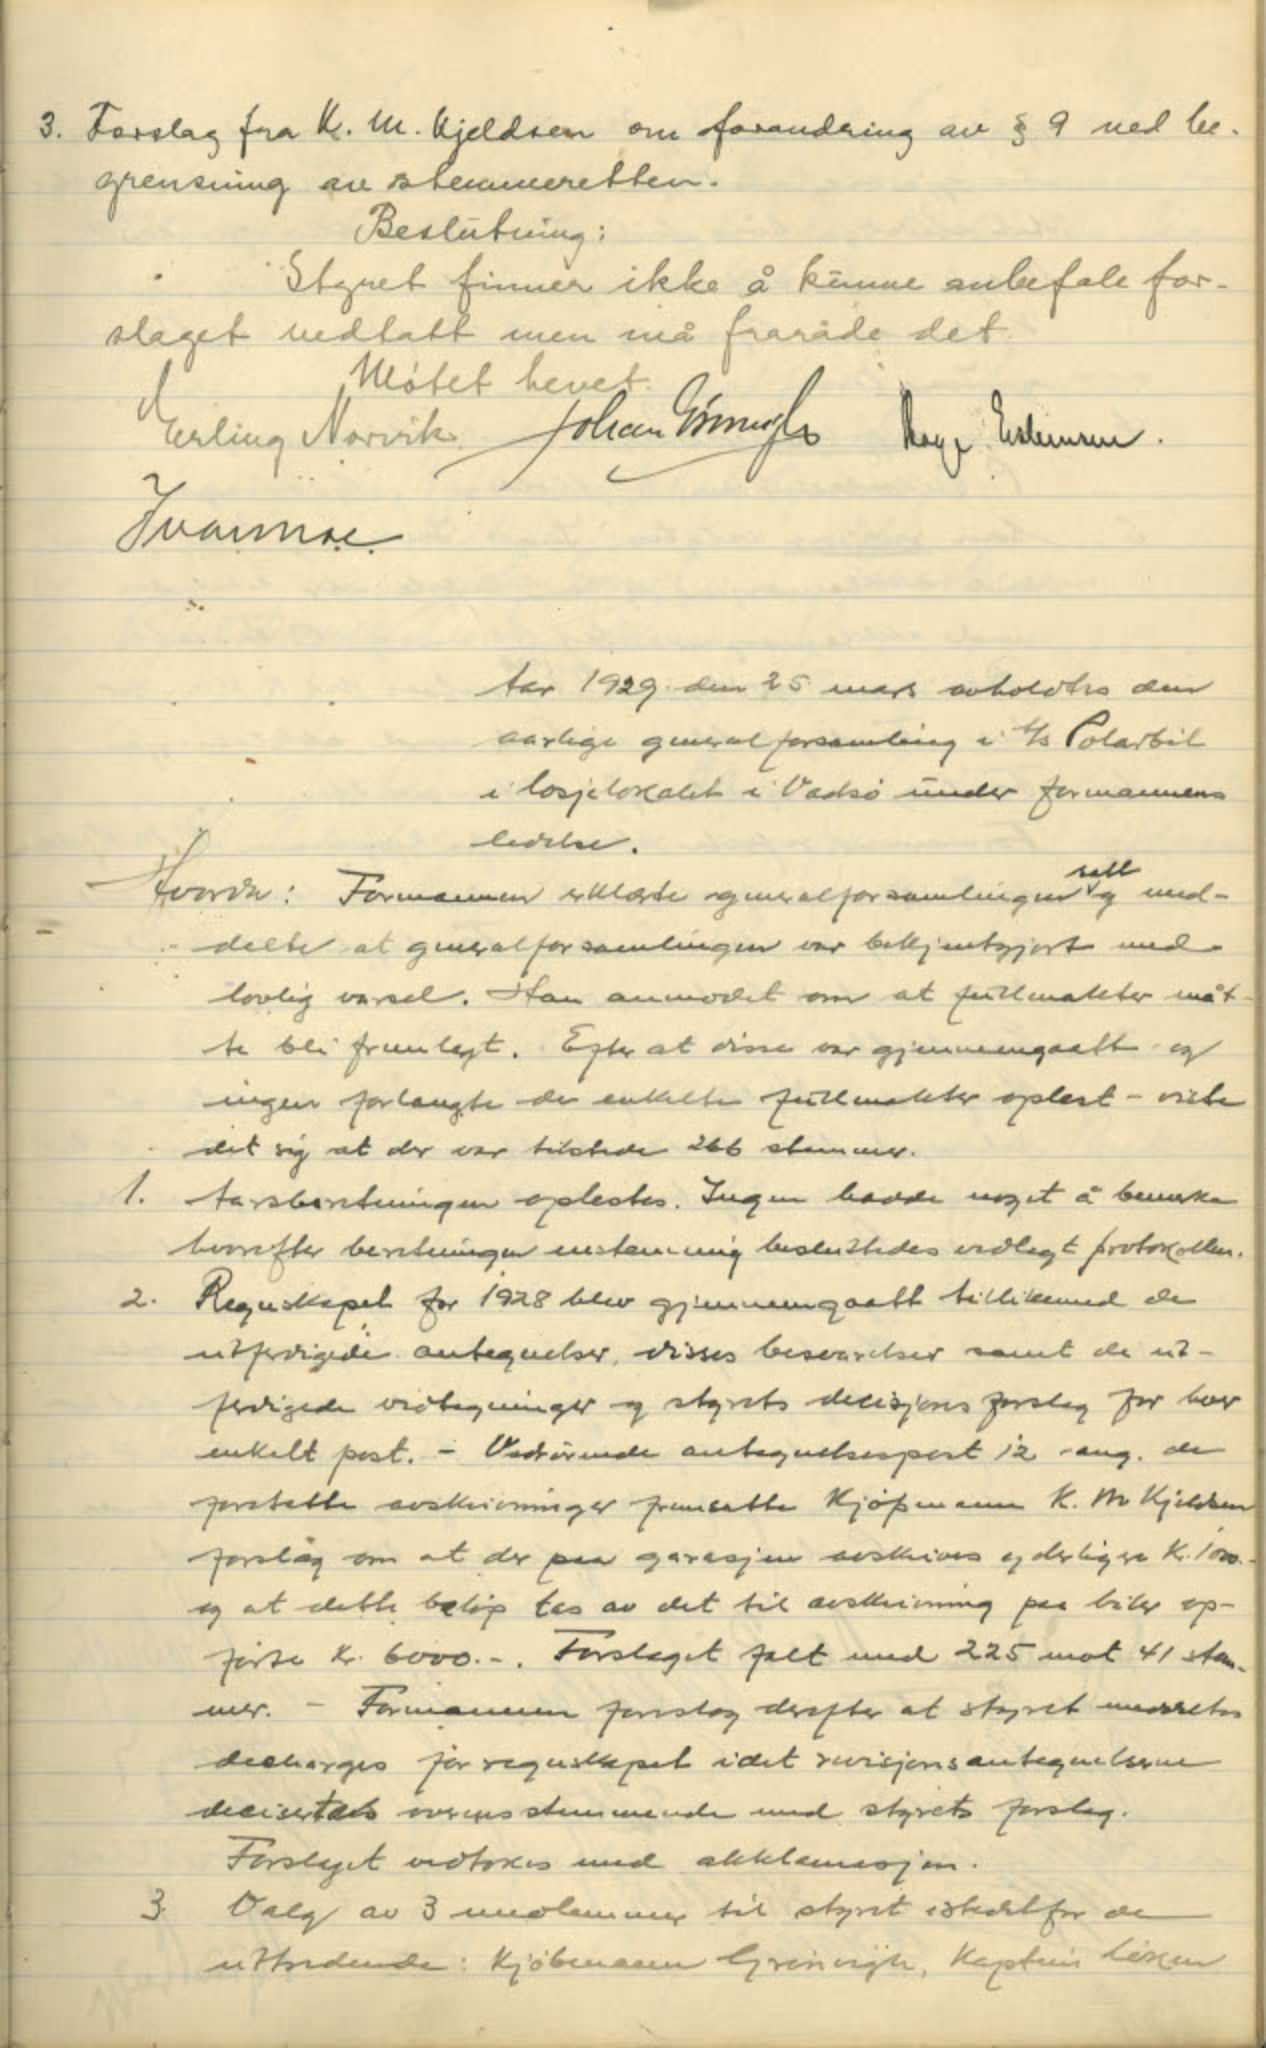 3. Forslag fra K. M. Kjeldsen om forandring av § 9 ved be-
grensning av stemmeretten.
Beslutning:
Styret finner ikke å kunne anbefale for-
slaget vedtatt men må fraråde det
Møtet hevet.
Erling Norvik Johan Grönvigh Aage Esbensen.
Ivar Moe.
Aar 1929 den 25 mars avholdtes den
aarlige generalforsamling i A/S Polarbil
i losjelokalet i Vadsö under formannens
ledelse.
Hvorda: Formannen erklærte generalforsamlingen satt og med-
delte at generalforsamlingen var bekjentgjort med
lovlig varsel. Han anmodet om at fullmakter måt-
te bli fremlagt. Efter at disse var gjennemgaatt og
ingen forlangte de enkelte fullmakter oplest - viste
det sig at der var tilstede 266 stemmer.
1. Aarsberetningen oplestes. Ingen hadde noget å bemerke
hvorefter beretningen enstemmig besluttedes vedlagt protokollen.
2. Regnskapet for 1928 blev gjennemgaatt tillikemed de
utferdigede antegnelser, disses besvarelser samt de ut-
ferdigede vedtegninger og styrets decisjons forslag for hver
enkelt post. - Vedrörende antegnelsespost 12 ang. de
foretatte avskrivninger fremsatte Kjöpmann K. M Kjeldsen
forslag om at der paa garasjen avskrives yderligere Kr. 1000.-
og at dette belöp tas av det til avskrivning paa biler op-
förte Kr. 6000.-. Forslaget falt med 225 mot 41 stem-
mer. - Formannen foreslog derefter at styret meddeltes
decharges for regnskapet idet revisjonsantegnelserne
decisertes overensstemmende med styrets forslag.
Forslaget vedtokes med akklamasjon.
3 Valg av 3 medlemmer til styret istedetfor de
uttredende: Kjöbmann Grönvigh, Kaptein Löken